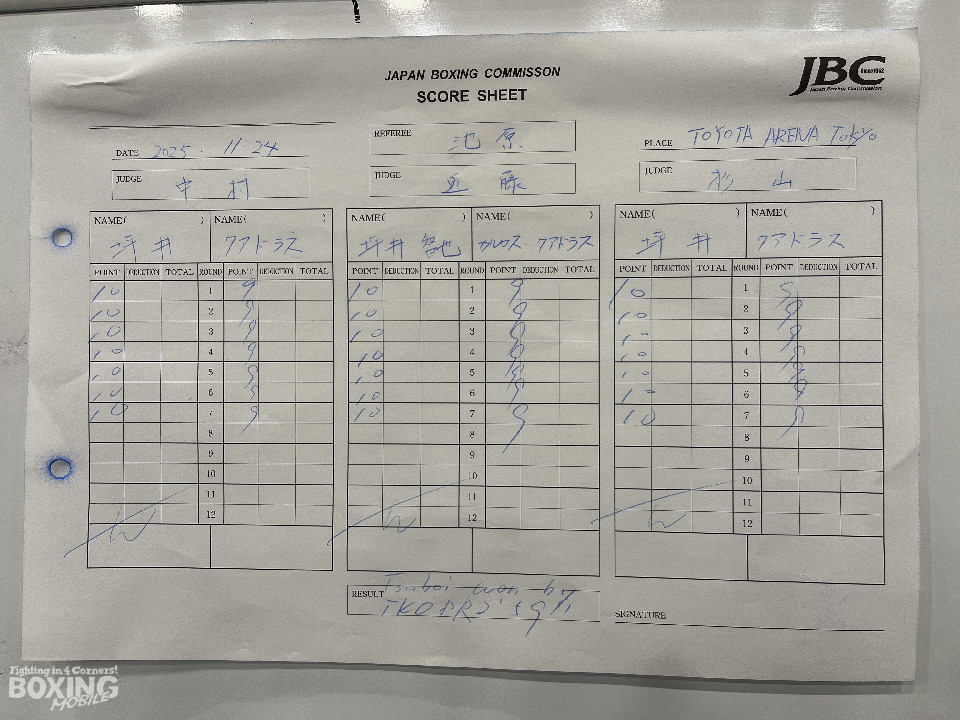 JAPAN BOXING COMMISSON
SCORE SHEET
JBC
Since1952
Japan Boxing Commission
DATE 2025 . 11 24
REFEREE 池 原
PLACE TOYOTA ARENA Tokyo
JUDGE 中 村
JUDGE 近 藤
JUDGE 杉 山
NAME( ) NAME( )
坪 井 クアドラス
POINT DEDUCTION TOTAL ROUND POINT DEDUCTION TOTAL
10 1 9
10 2 9
10 3 9
10 4 9
10 5 9
10 6 9
10 7 9
8
9
10
11
12
W
NAME( ) NAME( )
坪井 智也 カルロス クアドラス
POINT DEDUCTION TOTAL ROUND POINT DEDUCTION TOTAL
10 1 9
10 2 9
10 3 9
10 4 9
10 5 9
10 6 9
10 7 9
8
9
10
11
12
W
NAME( ) NAME( )
坪 井 クアドラス
POINT DEDUCTION TOTAL ROUND POINT DEDUCTION TOTAL
10 1 9
10 2 9
10 3 9
10 4 9
10 5 9
10 6 9
10 7 9
8
9
10
11
12
W
RESULT Tsuboi won by
TKO 8R
SIGNATURE
Fighting in 4 Corners!
BOXING
MOBILE